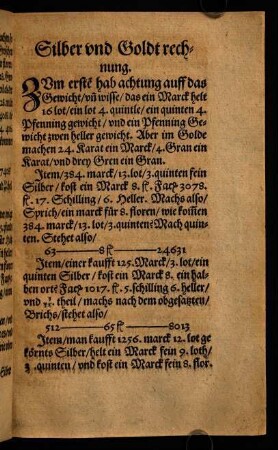 Silber vnd Goldt rech-
nung.
ZVm erstē hab achtung auff das
Gewicht/vn̄ wisse/das ein Marck helt
16 lot/ein lot 4. quintle/ein quinten 4.
Pfenning gewicht/vnd ein Pfenning Ge-
wicht zwen heller gewicht. Aber im Golde
machen 24. Karat ein Marck/4. Gran ein
Karat/vnd drey Gren ein Gran.
Item/384. marck/13. lot/3. quinten fein
Silber/kost ein Marck 8. fl. Facit 3078.
fl. 17. Schilling/6. Heller. Machs also/
Sprich/ein marck für 8. floren/wie kom̄en
384. marck/13. lot/3. quinten? Mach quin-
ten. Stehet also/
63——8 fl.——24631
Item/einer kaufft 125. Marck/3. lot/ein
quinten Silber/kost ein Marck 8. ein hal-
ben ort? Facit 1017. fl. 5. schilling 6. heller/
vnd theil/machs nach dem obgesatzten/
Brichs/stehet also/
512——65 fl.——8013
Item/man kaufft 1256. marck 12. lot ge
körnts Silber/helt ein Marck fein 9. loth/
3. quinten/vnd kost ein Marck fein 8. flor.